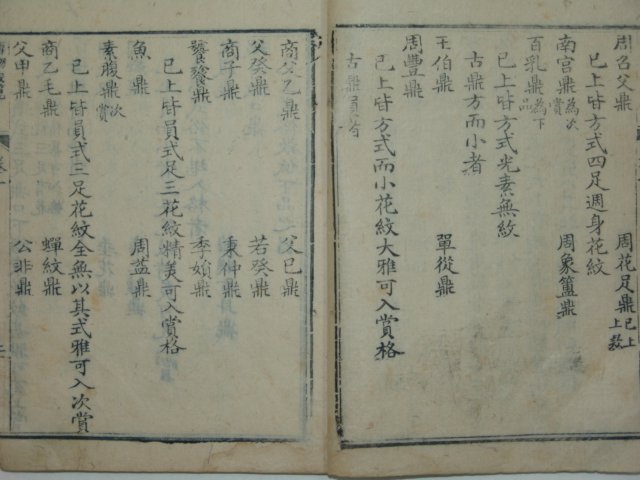 周召父鼎 周花足鼎 已上上款
已上皆方式四足週身花紋
南宮鼎 為次賞 周象簠鼎
百乳鼎 為下品
已上皆方式光素無紋
古鼎方而小者
王伯鼎 單從鼎
周豐鼎
已上皆方式而小花紋大雅可入賞格
古鼎員者
商父乙鼎 父已鼎
父癸鼎 若癸鼎
商子鼎 秉仲鼎
饕餮鼎 季娟鼎
已上皆員式足三花紋精美可入賞格
魚鼎 周益鼎
素腹鼎 次賞
已上皆員式三足花紋全無以其式雅可入次賞
商乙毛鼎 蟬紋鼎
父甲鼎 公非鼎
卷一